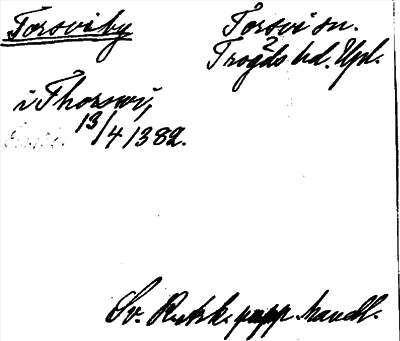 Torsviby
Torsvi sn.
Trögds hd. Upl.
i Thorswi,
13/4 1382.
Sv. Riksark. papp. handl.